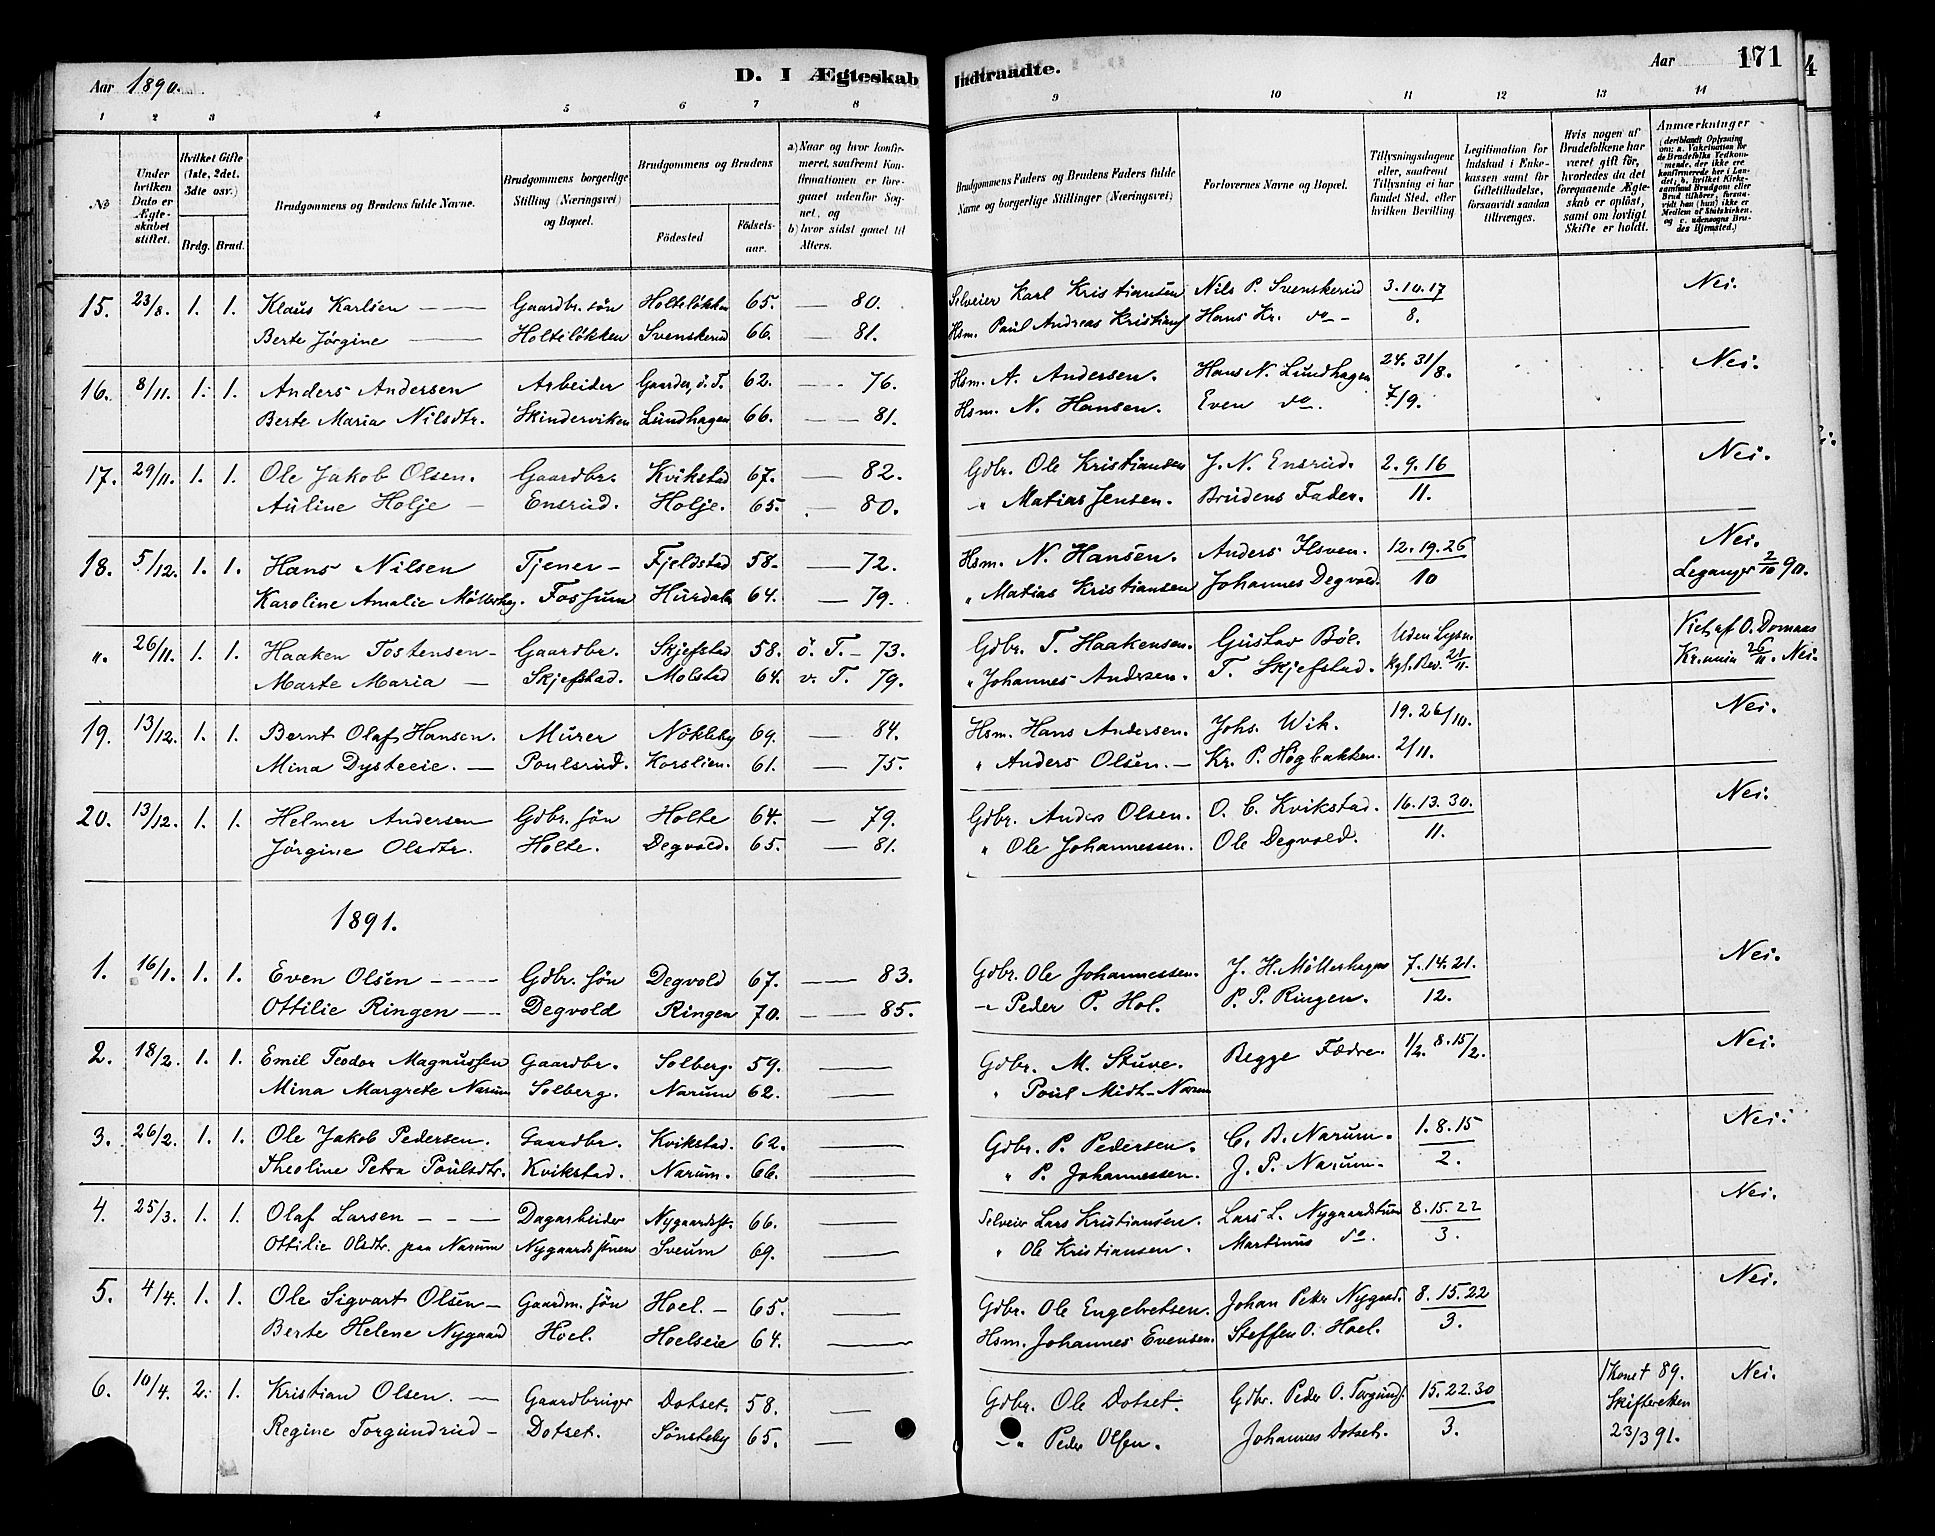 Aar 1890. D. I Ægteskab Indtraadte. Aar 171
1 2 3 4 5 6 7 8 9 10 11 12 13 14
№
Under hvilken Dato er Ægteskabet stiftet.
Hvilket Gifte (1ste, 2det. 3die osv.)
Brdg. Brud.
Brudgommens og Brudens fulde Navne.
Brudgommens borgerlige Stilling (Næringsvei) og Bopæl.
Brudgommens og Brudens
Födested Födselsaar.
a) Naar og hvor konfirmeret, saafremt Konfirmationen er foregaaet udenfor Sognet, og
b) hvor sidst gaaet til Alters.
Brudgommens Faders og Brudens Faders fulde Navne og borgerlige Stillinger (Næringsvei)
Forlovernes Navne og Bopæl.
Tillysningsdagene eller, saafremt Tillysning ei har fundet Sted, efter hvilken Bevilling
Legitimation for Indskud i Enkekassen samt for Giftetilladelse, forsaavidt saadan tiltrænges.
Hvis nogen af Brudefolkene har været gift för, hvorledes da det foregaaende Ægteskab er oplöst, samt om lovligt Skifte er holdt.
Anmærkninger
15. 23/8. 1. 1. Klaus Karlsen — Gaardbr. sön Holteløkken 65. — 80. Selveier Karl Kristiansen Nils P. Svenskerud 3.10.17 Nei.
Berte Jørgine — Holteløkken Svenskerud 66. — 81. Hsm. Paul Andreas Kristians Hans Kr. do — 8.
16. 8/11. 1. 1. Anders Andersen Arbeider Gaarder, ö. T. 62. — 76. Hsm. A. Andersen. Hans N. Lundhagen 24. 31/8. Nei.
Berte Maria Nilsdtr. Skinderviken Lundhagen 66. — 81. Hsm. N. Hansen. Even do. 7/9.
17. 29/11. 1. 1. Ole Jakob Olsen. Gaardbr. Kvikstad 67. — 82. Gdbr. Ole Kristiansen J. N. Ensrud. 2.9.16 Nei.
Auline Holje — Ensrud. Holje. 65. — 80. " Matias Jensen. Brudens Fader. 11.
18. 5/12. 1. 1. Hans Nilsen Tjener — Fjeldstad 58. — 72. Hsm. N. Hansen. Anders Ilsven. 12.19.26 Nei.
Karoline Amalie Möllerhag. Fossum Hurdalen 64. — 79. " Matias Kristiansen Johannes Degvold. 10 Leganger 2/10 90.
". 26/11. 1. 1. Haaken Tostensen — Gaardbr. Skjefstad 58. ö. T. — 73. Gdbr. T. Haakensen. Gustav Böe. Uden Lysn. Viet af O. Domaas
Marte Maria — Skjefstad. Molstad 64. v. T. 79. " Johannes Andersen. T. Skjefstad. Kgl. Bev. 21/11. Kr.ania 26/11. Nei.
19. 13/12. 1. 1. Bernt Olaf Hansen. Murer Nökleby 69. — 84. Hsm. Hans Andersen. Johs. Wik. 19.26/10. Nei.
Mina Dysteeie. — Poulsrud. Korslien. 61. — 75. " Anders Olsen. — Kr. P. Høgbakken. 2/11.
20. 13/12. 1. 1. Helmer Andersen Gdbr. sön Holte 64. — 79. Gdbr. Anders Olsen. O. C. Kvikstad. 16.13.30. Nei.
Jörgine Olsdtr. Holte. Degvold. 65. — 81. " Ole Johannessen. Ole Degvold. 11.
1891.
1. 16/1. 1. 1. Even Olsen — Gdbr. sön Degvold 67. — 83. Gdbr. Ole Johannessen. J. H. Möllerhagen 7.14.21. Nei.
Ottilie Ringen — Degvold Ringen 70. — 85. " Peder P. Hol. P. P. Ringen. 12.
2. 18/2. 1. 1. Emil Teodor Magnussen Gaardbr. Solberg. 59. — Gdbr. M. Stuve. Begge Fædre. 1/2. 8.15/2. Nei.
Mina Margrete Narum Solberg. Narum 62. — " Poul Midt-Narum
3. 26/2. 1. 1. Ole Jakob Pedersen. Gaardbr. Kvikstad. 62. — Gdbr. P. Pedersen. C. B. Narum. 1.8.15 Nei.
Theoline Petra Poulsdtr. Kvikstad. Narum. 66. — " P. Johannessen. J. P. Narum. 2.
4. 25/3. 1. 1. Olaf Larsen — Dagarbeider Nygaardst. 66. — Selveier Lars Kristiansen. Lars L. Nygaardstuen 8.15.22 Nei.
Ottilie Olsdtr. paa Narum Nygaardstuen Sveum 69. — " Ole Kristiansen. Martinus do. 3.
5. 4/4. 1. 1. Ole Sigvart Olsen — Gaardm. sön Hoel. — 65. Gdbr. Ole Engebretsen. Johan Petr Nygrd. 8.15.22 Nei.
Berte Helene Nygaard Hoel. Hoelseie 64. — Hsm. Johannes Evensen. Steffen O. Hoel. 3.
6. 10/4. 2. 1. Kristian Olsen. — Gaardbruger Dotset. 58. — Gdbr. Ole Dotset. Gdbr. Peder O. Torgunds. 15.22.30 1 Konet 89. Nei.
Regine Torgundrud — Dotset. Sönsteby 65. — " Peder Olsen. Johannes Dotset. 3. Skifteretten
23/3 91.